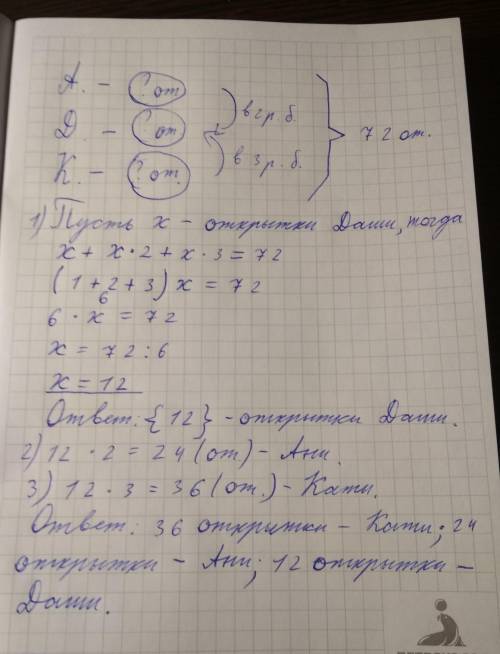 А. – ? от.
Д. – ? от. в 2 р. б. 72 от.
К. – ? от. в 3 р. б.
1) Пусть х – открытки Даши, тогда
х + х · 2 + х · 3 = 72
(1 + 2 + 3) х = 72
6
6 · х = 72
х = 72 : 6
х = 12
Ответ: {12} – открытки Даши.
2) 12 · 2 = 24 (от) – Ани.
3) 12 · 3 = 36 (от.) – Кати.
Ответ: 36 открытки – Кати; 24
открытки – Ани; 12 открытки –
Даши.